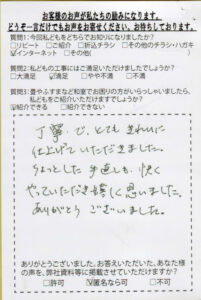 お客様のお声が私たちの励みになります。
どうぞ一言だけでもお声をお寄せください。お待ちしております。
質問1:今回私どもをどちらでお知りになりましたか?
□リピート □ご紹介 □折込チラシ □その他のチラシ・ハガキ
☑インターネット □その他(
質問2:私どもの工事にはご満足いただけましたでしょうか?
□大満足 ☑満足 □やや不満 □不満
質問3:畳やふすまなど和室でお困りの方がいらっしゃいましたら、
私どもをご紹介いただけますでしょうか?
☑紹介できる □紹介できない
丁寧で、とてもきれいに
仕上げていただきました。
ちょっとした手直しも、快く
やっていただき嬉しく思いました。
ありがとうございました。
ありがとうございました。お答えいただいた、あなた様
の声を、弊社資料等に掲載させていただけますか?
□許可 ☑匿名なら可 □不可